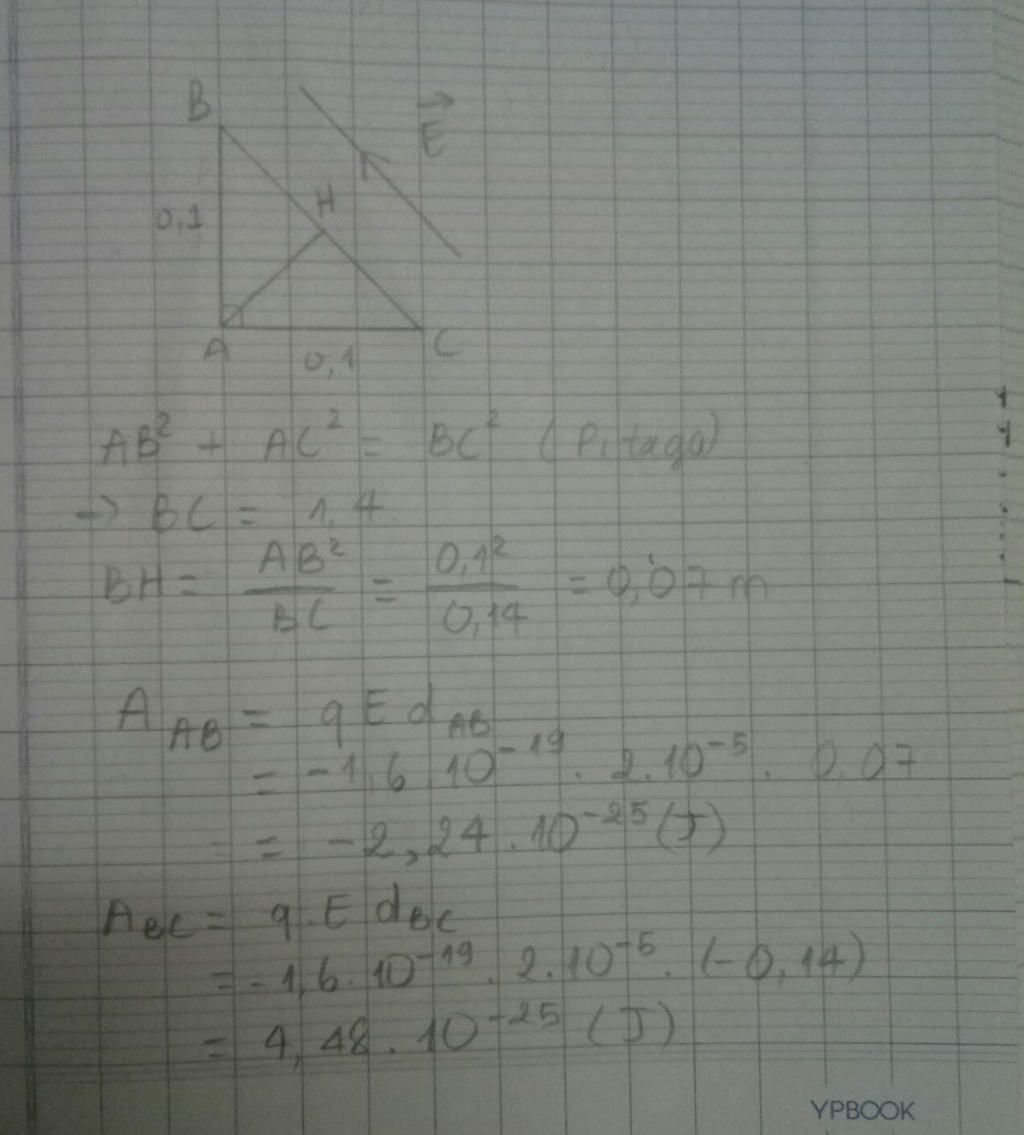 B
E
H
0,1
A
C
0,1
AB² + AC² = BC² (Pitago)
→ BC = 1,4
BH = AB²/BC = 0,1²/0,14 = 0,07 m
A_AB = q E d_AB
= -1,6.10⁻¹⁹. 2.10⁻⁵. 0,07
= -2,24.10⁻²⁵ (J)
A_BC = q.E d_BC
= -1,6.10⁻¹⁹. 2.10⁻⁵. (-0,14)
= 4,48.10⁻²⁵ (J)
YPBOOK